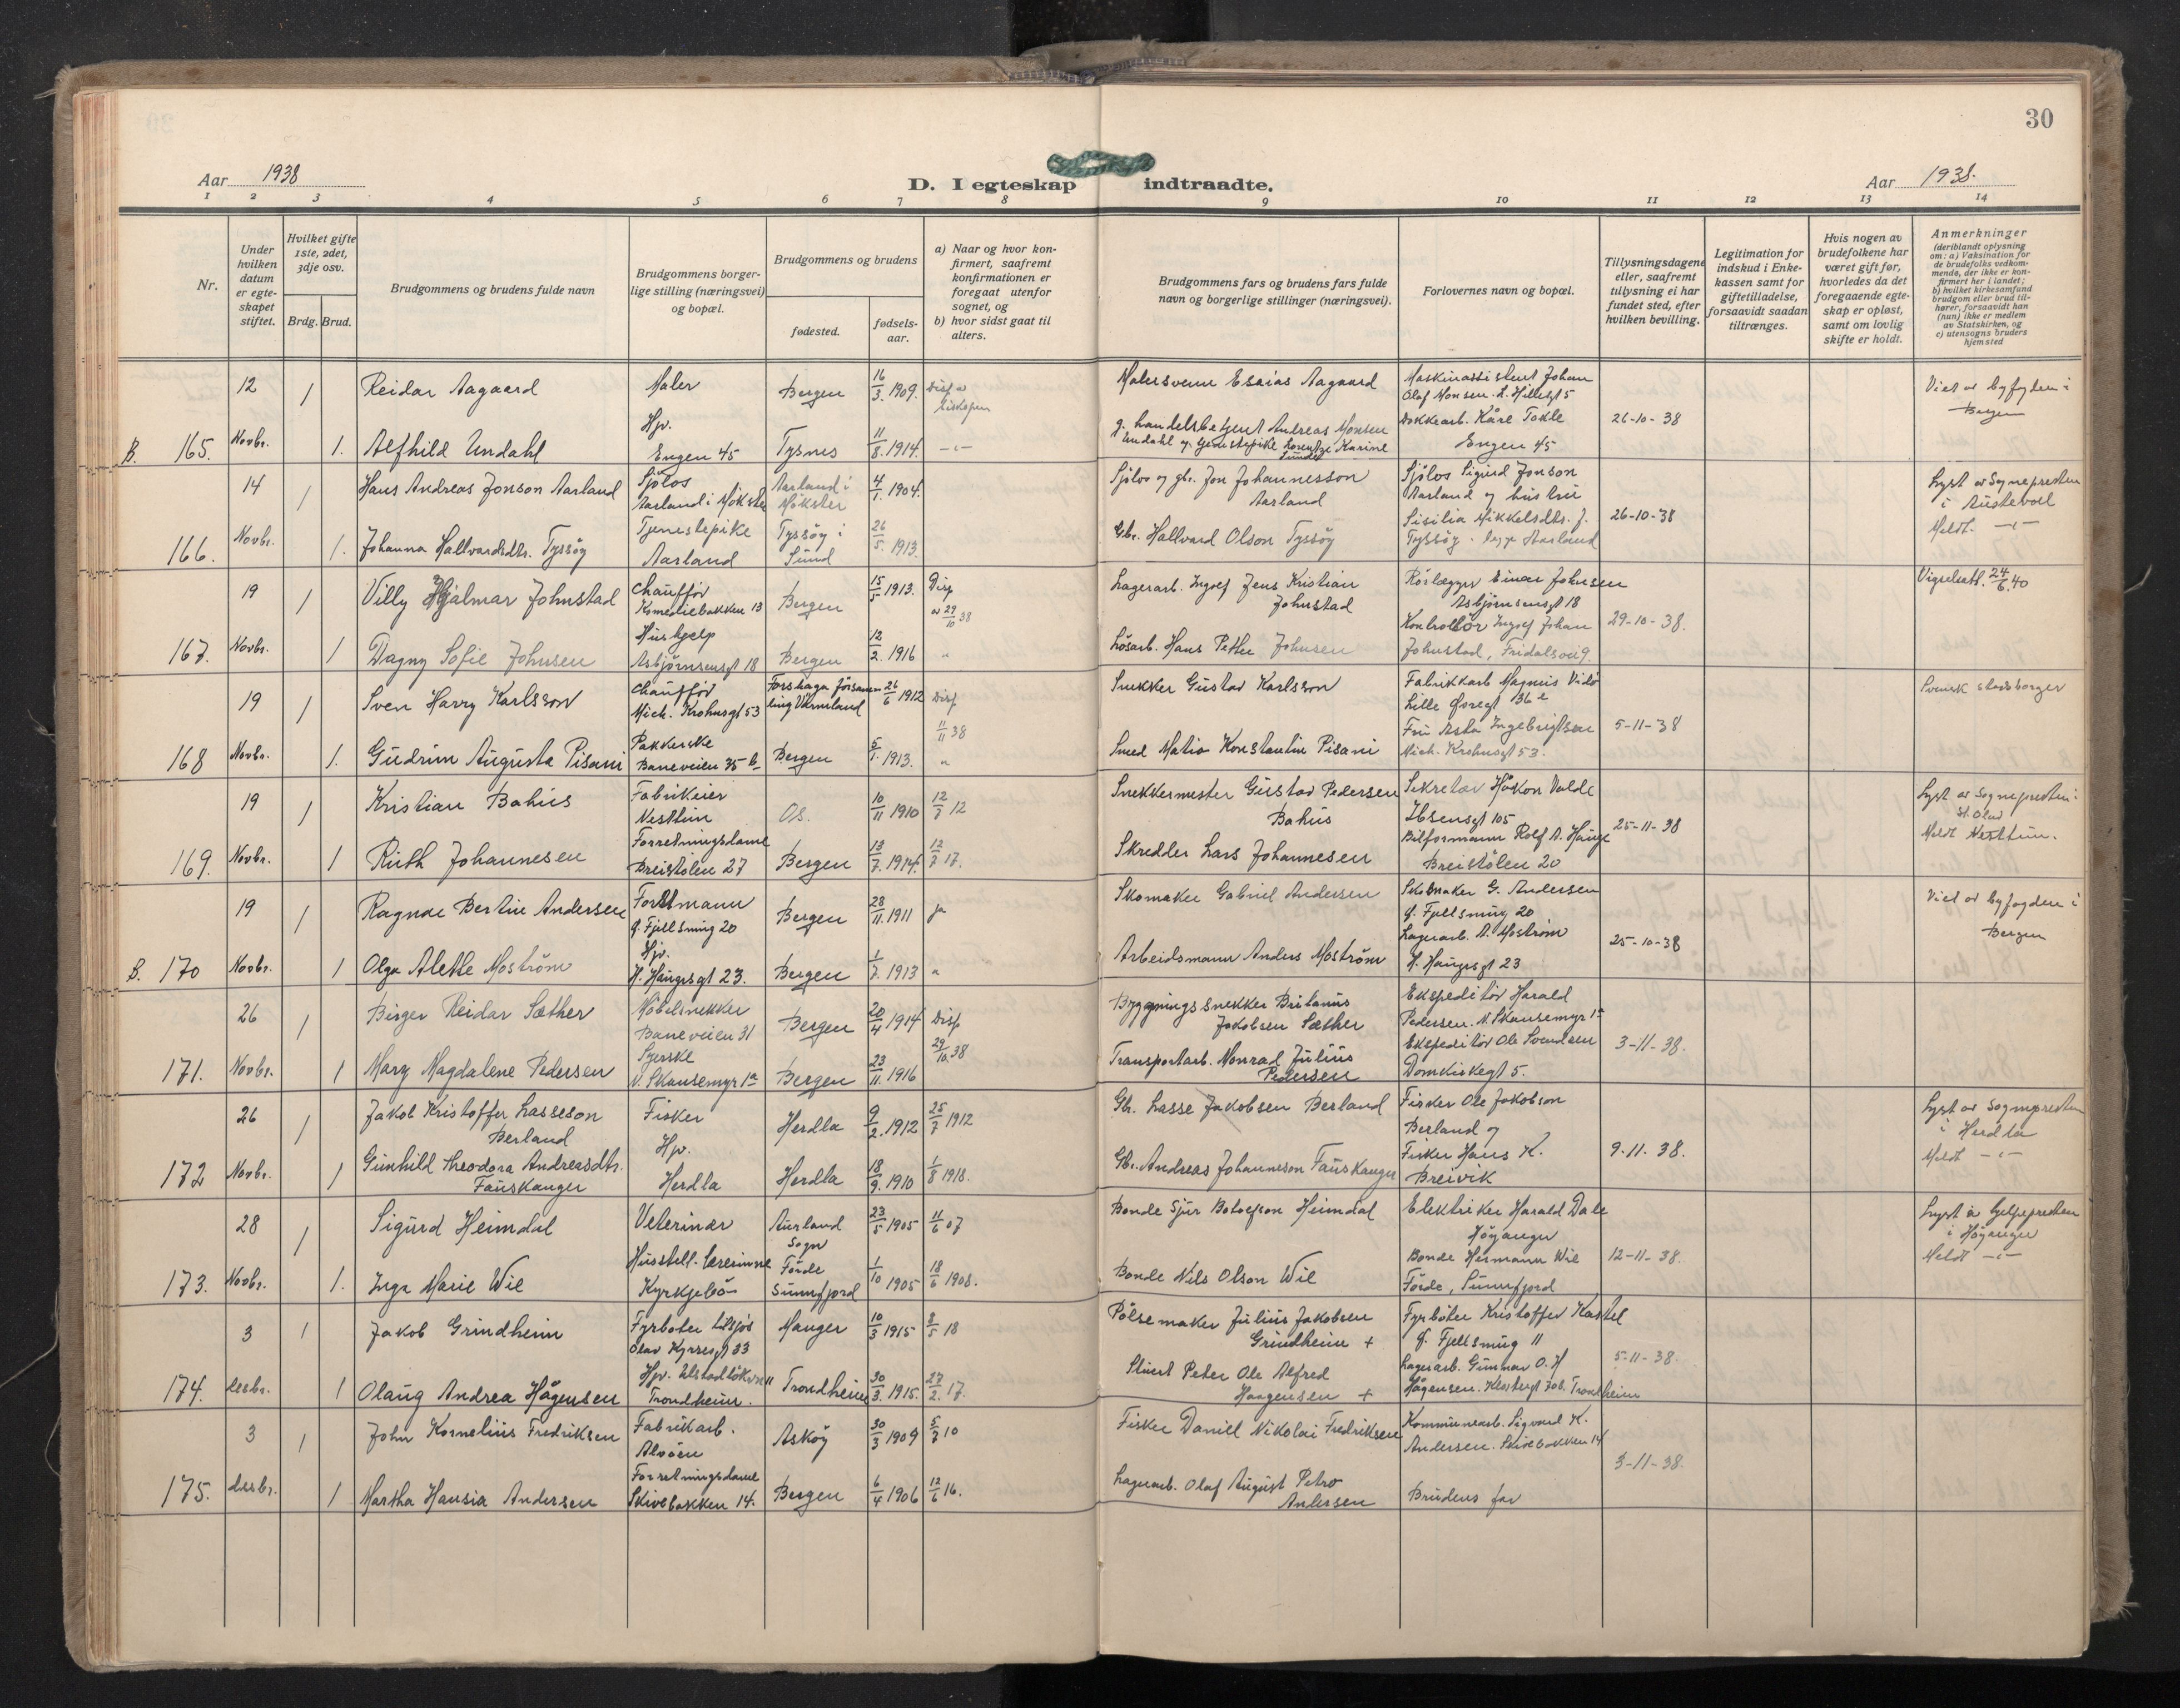 30
Aar 1938
D. I egteskap indtraadte.
Aar 1938.
1 2 3 4 5 6 7 8 9 10 11 12 13 14
Nr.
Under hvilken datum er egteskapet stiftet.
Hvilket gifte 1ste, 2det, 3dje osv.
Brdg. Brud.
Brudgommens og brudens fulde navn
Brudgommens borgerlige stilling (næringsvei) og bopæl.
Brudgommens og brudens
fødested.
fødselsaar.
a) Naar og hvor konfirmert, saafremt konfirmationen er foregaat utenfor sognet, og
b) hvor sidst gaat til alters.
Brudgommens fars og brudens fars fulde navn og borgerlige stillinger (næringsvei).
Forlovernes navn og bopæl.
Tillysningsdagene eller, saafremt tillysning ei har fundet sted, efter hvilken bevilling.
Legitimation for indskud i Enkekassen samt for giftetilladelse, forsaavidt saadan tiltrænges.
Hvis nogen av brudefolkene har været gift før, hvorledes da det foregaaende egteskap er opløst, samt om lovlig skifte er holdt.
Anmerkninger
(deriblandt oplysning om: a) Vaksination for de brudefolks vedkommende, der ikke er konfirmert her i landet;
b) hvilket kirkesamfund brudgom eller brud tilhører, forsaavidt han (hun) ikke er medlem av Statskirken, og
c) utensogns bruders hjemsted
12 1 Reidar Aagaard Maler Bergen 16/3. 1909. Disp av biskopen Malersvenn Esaias Aagaard Maskinassistent Johan Olaf Monsen. L. Hillesgt 5 Viet av byfogden i Bergen
B. 165. Novbr. 1. Alfhild Undahl Hjv. Engen 45 Tysnes 11/8. 1914. -"- g. handelsbetjent Andreas Monsen Undahl og tjenestepike Karine Dokkearb. Kåre Takle Engen 45 26-10-38
14 1 Hans Andreas Jonson Aarland Sjölos Aarland i Møkster Aarland i Møkster 4/1. 1904. Sjölos og gbr. Jon Johannesson Aarland Sjölos Sigurd Jonson Aarland og hustru Lyst av Sognepresten i Austevoll
166. Novbr. 1. Johanna Hallvardsdtr. Tyssöy Tjenestepike Aarland Tyssöy i Sund 26/5. 1913. Gbr. Hallvard Olson Tyssöy Sisilia Mikkelsdtr. f. Tyssöy. begge Aarland 26-10-38 Meldt. -"-
19 1 Villy Hjalmar Johnstad Chaufför Komediebakken 13 Bergen 15/5 1913. Disp av 29/10 38 Lagerarb. Ingolf Jens Kristian Johnstad Rörlægger Einar Johnsen Asbjörnsensgt 18 Vigselsatt. 24/6.40
167. Novbr. 1 Dagny Sofie Johnsen Hushjelp Asbjörnsensgt 18 Bergen 12/2. 1916 " Lösarb. Hans Petter Johnsen Kontrollör Ingolf Johan Johnstad, Fridalsvei 9. 29-10-38.
19 1 Sven Harry Karlsson Chauffför Mich. Krohnsgt 53 Forshaga församling Värmland 26/6 1912 Disp 11/11 38 Snekker Gustav Karlsson Fabrikkarb Magnus Vilö Lille Øvregt 36 e Svensk statsborger
168 Novbr. 1. Gudrun Augusta Pisani Pakkerske Baneveien 35 b Bergen 5/1. 1913. " Smed Matio Konstantin Pisani Fru Asta Ingebrigtsen Mich. Krohnsgt 53. 5-11-38
19 1 Kristian Bahus Fabrikeier Nesttun Os. 10/11 1910 12/7 12 Snekkermester Gustav Pedersen Bahus Sekretær Håkon Valde Ibsensgt 105 Lyst av Sognepresten i St. Olav
169. Novbr. 1 Ruth Johannesen Forretningsdame Breistölen 27 Bergen 13/7. 1914. 12/7 17. Skredder Lars Johannesen Bilformann Rolf A. Hauge Breistölen 20 25-11-38 Meldt Nesttun.
19 1 Ragnar Bertin Andersen Formann Ø. Fjellsmug 20 Bergen 28/11. 1911 ja Skomaker Gabriel Andersen Skomaker G. Andersen Ø. Fjellsmug 20 Viet av byfogden i Bergen
B. 170 Novbr. 1 Olga Alette Moström Hjv. H. Haugesgt 23. Bergen 1/7. 1913 " Arbeidsmann Anders Moström Lagerarb. A. Moström H. Haugesgt 23 25-10-38
26 1 Birger Reidar Sæther Möbelsnekker Baneveien 31 Bergen 20/4 1914 Disp 29/10.38 Byggningssnekker Britanus Jakobsen Sæther Ekspeditör Harald Pedersen. N. Skansemyr 1a
171. Novbr. 1 Mary Magdalene Pedersen Syerske N. Skansemyr 1a Bergen 23/11. 1916 Transportarb. Monrad Julius Pedersen Ekspeditör Ole Svendsen Domkirkegt 5. 3-11-38.
26 1 Jakob Kristoffer Lasseson Berland Fisker Herdla 9/2. 1912 25/7 1912 Gb. Lasse Jakobsen Berland Fisker Ole Jakobson Berland og Lyst av Sognepresten i Herdla
172 Novbr. 1 Gunhild Theodora Andreasdtr. Fauskanger Hjv. Herdla Herdla 18/9. 1910 1/8 1918. Gbr. Andreas Johanneson Fauskanger Fisker Hans K. Breivik 9.11.38. Meldt -"-
28 1 Sigurd Heimdal Veterinær Aurland Sogn 23/5 1905 11/6 07 Bonde Sjur Botolfson Heimdal Elektriker Harald Dale Höyanger Lyst av hjelpepresten i Höyanger
173. Novbr. 1. Inga Marie Wie Husstell-lærerinne Kyrkjebö Förde Sunnfjord 1/10 1905 18/6 1908. Bonde Nils Olson Wie Bonde Hermann Wie Förde, Sunnfjord 12-11-38. Meldt -"-
3 1 Jakob Grindheim Fyrböter tilsjös Olav Kyrresgt 33 Manger 10/3 1915 8/5 18 Pölsemaker Julius Jakobsen Grindheim + Fyrböter Kristoffer Kastel Ø. Fjellsmug 11
174. desbr. 1 Olaug Andrea Hågensen Hjv. Trondheim. Trondheim 30/3. 1915. 27/2. 17. Peter Ole Alfred Haagensen + Lagerarb. Gunnar O. H Hågensen. Trondheim 5-11-38.
3 1 John Kornelius Fredriksen Fabrikarb. Alvöen Asköy 30/3 1909 5/7 10 Fisker Daniel Nikolai Fredriksen Kommunearb. Sigvard K. Andersen. Skivebakken 14
175. desbr. 1 Martha Hansia Andersen Forretningsdame Skivebakken 14. Bergen 6/4 1906 12/6 16. Lagerarb. Olaf August Petro Andersen Brudens far 3-11-38.